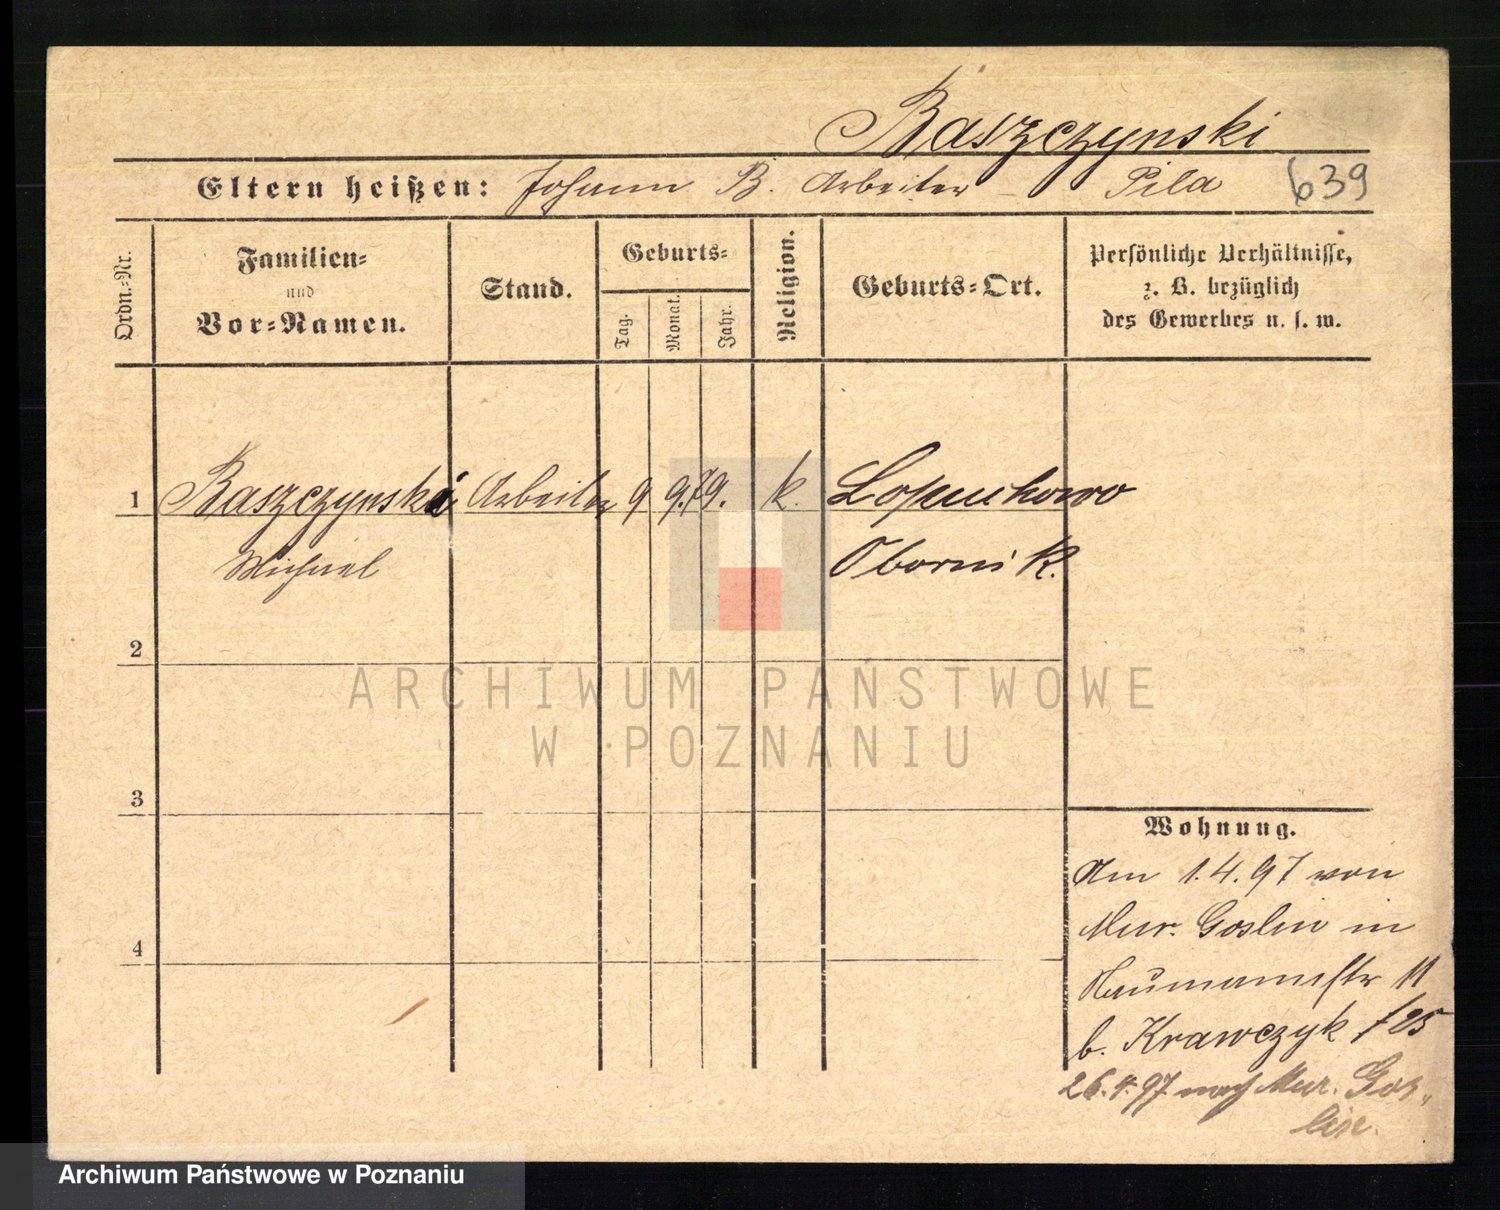 Baszczynski
Eltern heißen: Johann B. Arbeiter – Pila 639
Ordn.-Nr.
Familien-
und
Vor-Namen.
Stand.
Geburts-
Tag. Monat. Jahr.
Religion.
Geburts-Ort.
Persönliche Verhältnisse,
z. B. bezüglich
des Gewerbes u. s. w.
1 Baszczynski Arbeiter 9 9. 79. k. Lopuchowo
Michael Obornik.
2
3
4
Wohnung.
Am 1.4.97 von
Mur. Goslin in
Naumannstr 11
b. Krawczyk /25
26.4.97 nach Mur. Gos-
lin.
ARCHIWUM PAŃSTWOWE
W POZNANIU
Archiwum Państwowe w Poznaniu